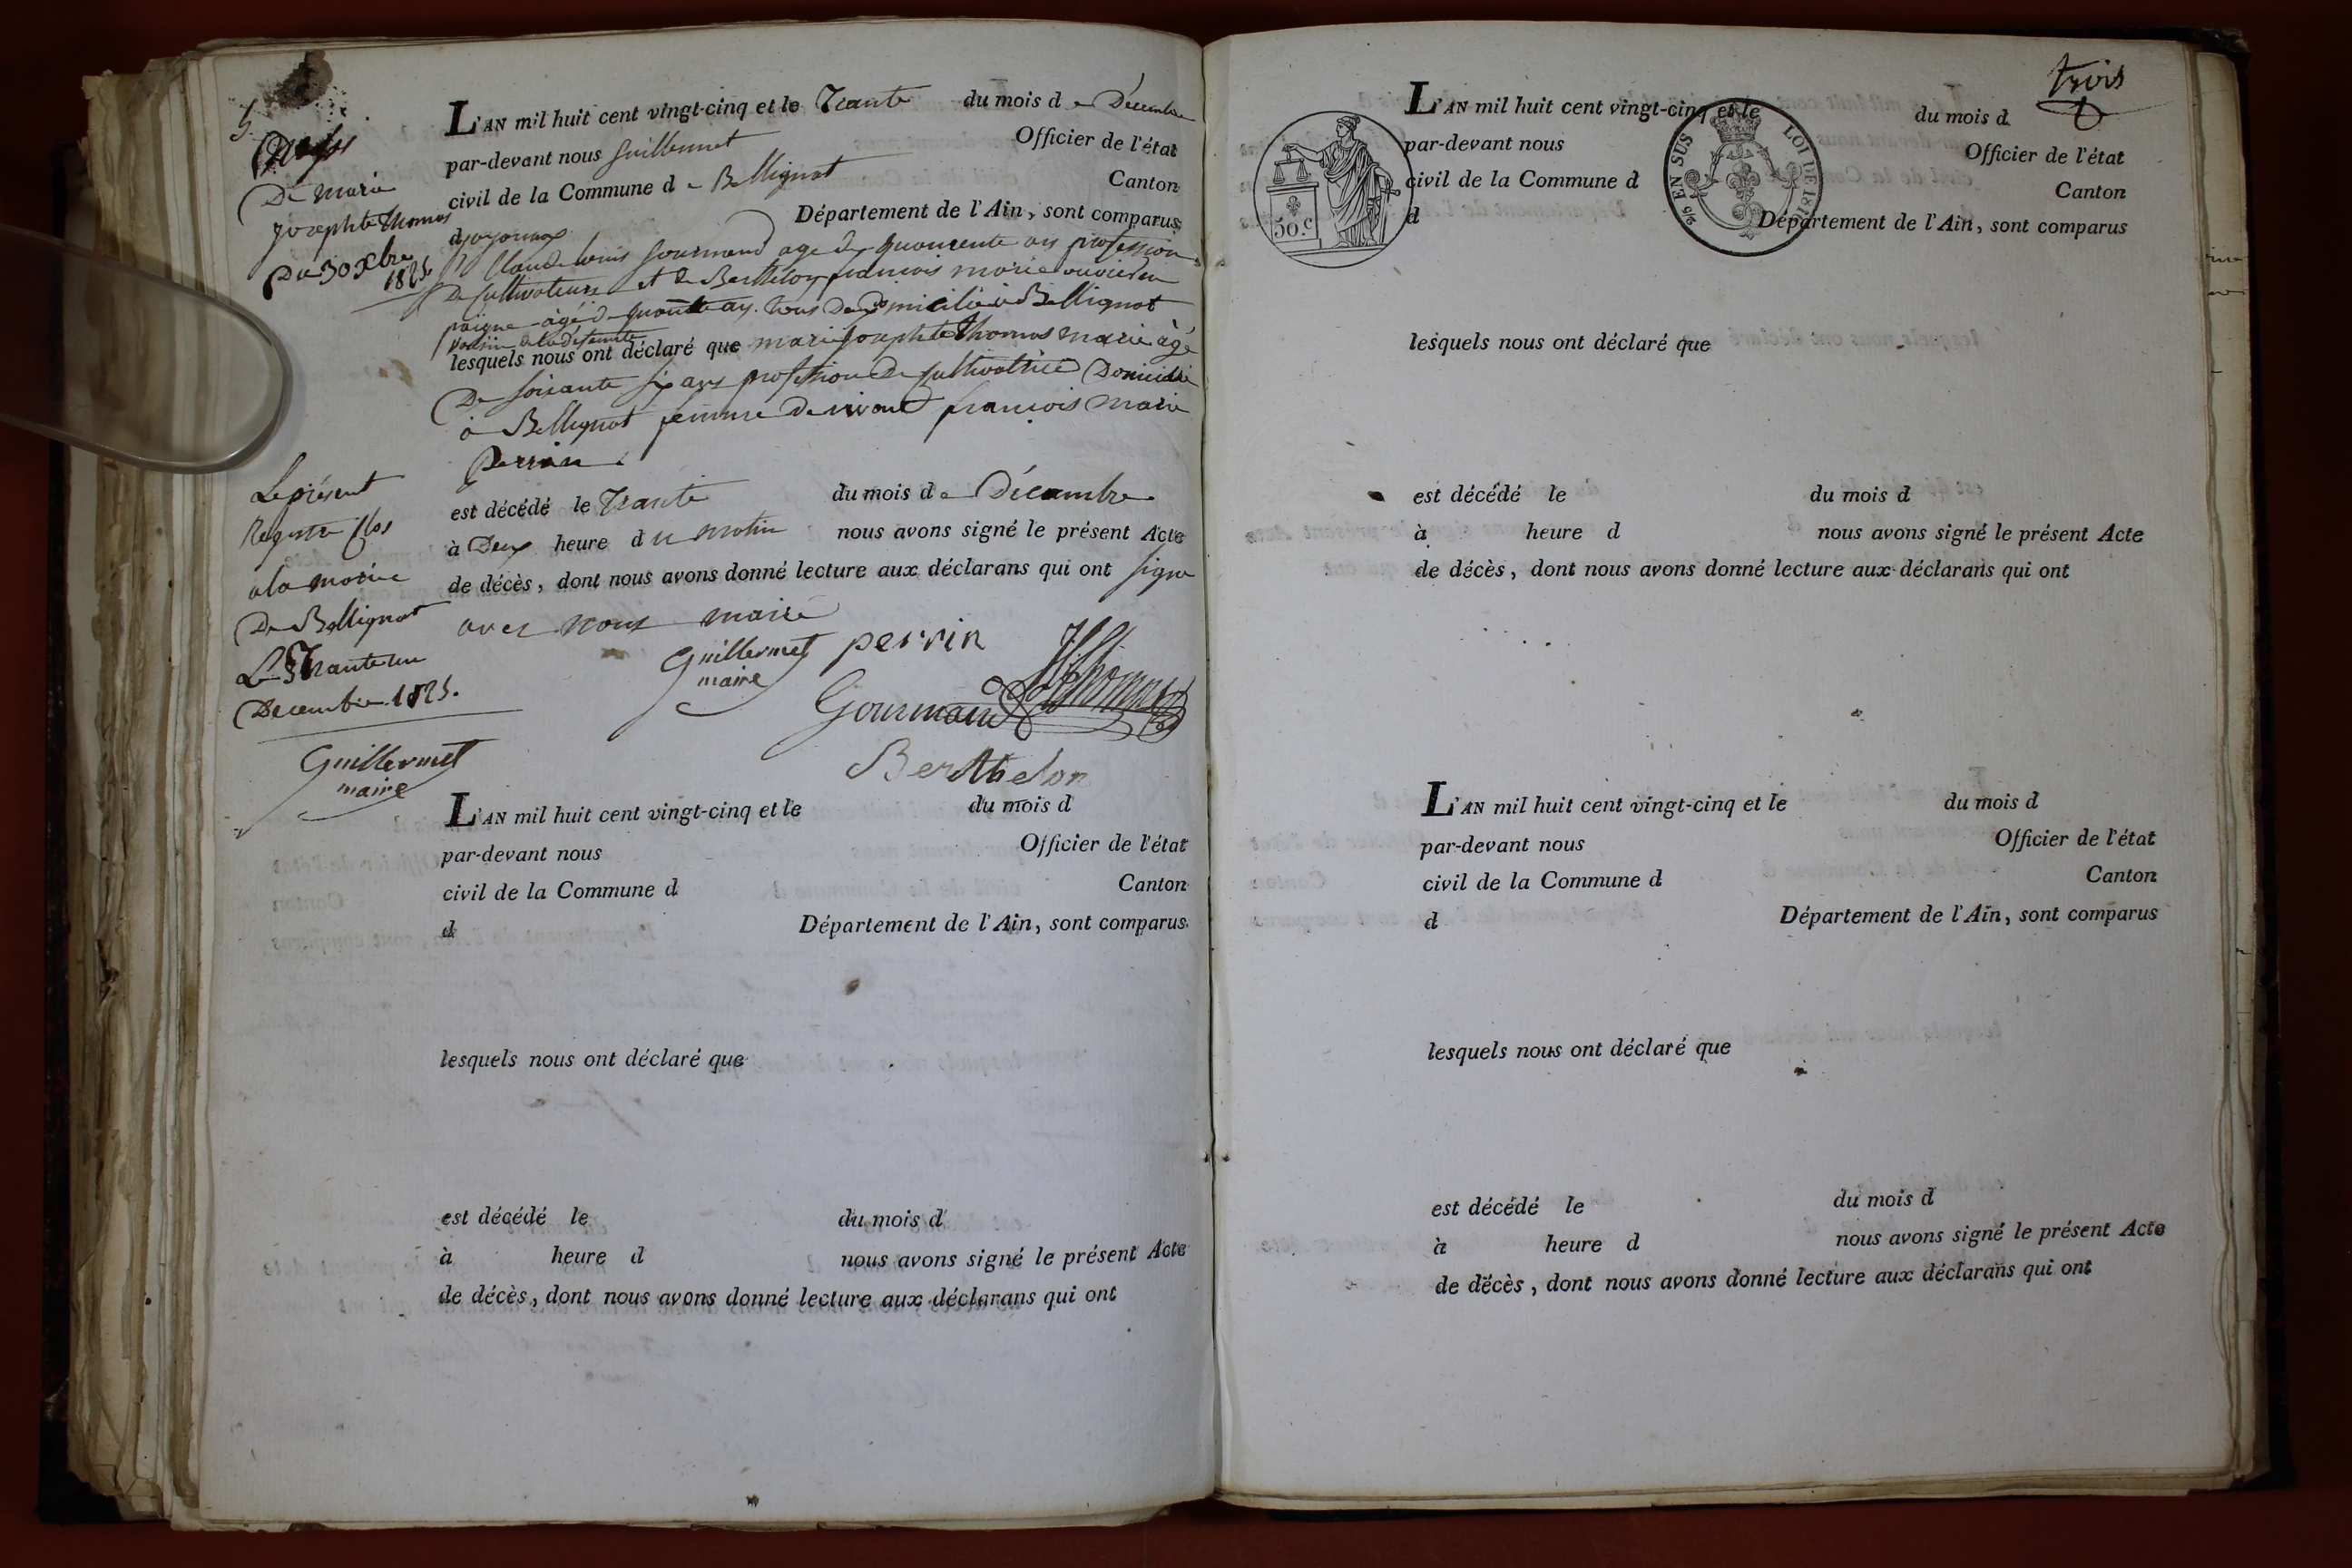 5
Décès
De marie
josephte thomas
Du 30 Xbre
1825
L'AN mil huit cent vingt-cinq et le Trante du mois de Décembre
par-devant nous Guillermet Officier de l'état
civil de la Commune de Bellignat Canton
d'oyonnax Département de l'Ain, sont comparus
Claude louis Gourmand agé de quarente ans profession
De cultivateure et de Berthelon francois marie ouvrier en
paigne âgé de quarante ans tous deux domicilié à Bellignat
voisin de la defeunte
lesquels nous ont déclaré que marie josephte thomas marie âgé
De soixante six ans profession de cultivatrice Domicilié
à Bellignat femme de vivant francois marie
Perrin
est décédé le Trante du mois de Décambre
à Deux heure du matin nous avons signé le présent Acte
de décès, dont nous avons donné lecture aux déclarans qui ont signé
avec nous maire
Guillermet perrin
maire
Gourmand Thomas
Berthelon
Le présent
Registre clos
a la mairie
De Bellignat
Le Trante un
Decembre 1825.
Guillermet
maire
L'AN mil huit cent vingt-cinq et le du mois d
par-devant nous Officier de l'état
civil de la Commune d Canton
d Département de l'Ain, sont comparus
lesquels nous ont déclaré que
est décédé le du mois d
à heure d nous avons signé le présent Acte
de décès, dont nous avons donné lecture aux déclarans qui ont
trois
50.c
EN SUS LOI DE
L'AN mil huit cent vingt-cinq et le du mois d
par-devant nous Officier de l'état
civil de la Commune d Canton
d Département de l'Ain, sont comparus
lesquels nous ont déclaré que
est décédé le du mois d
à heure d nous avons signé le présent Acte
de décès, dont nous avons donné lecture aux déclarans qui ont
L'AN mil huit cent vingt-cinq et le du mois d
par-devant nous Officier de l'état
civil de la Commune d Canton
d Département de l'Ain, sont comparus
lesquels nous ont déclaré que
est décédé le du mois d
à heure d nous avons signé le présent Acte
de décès, dont nous avons donné lecture aux déclarans qui ont